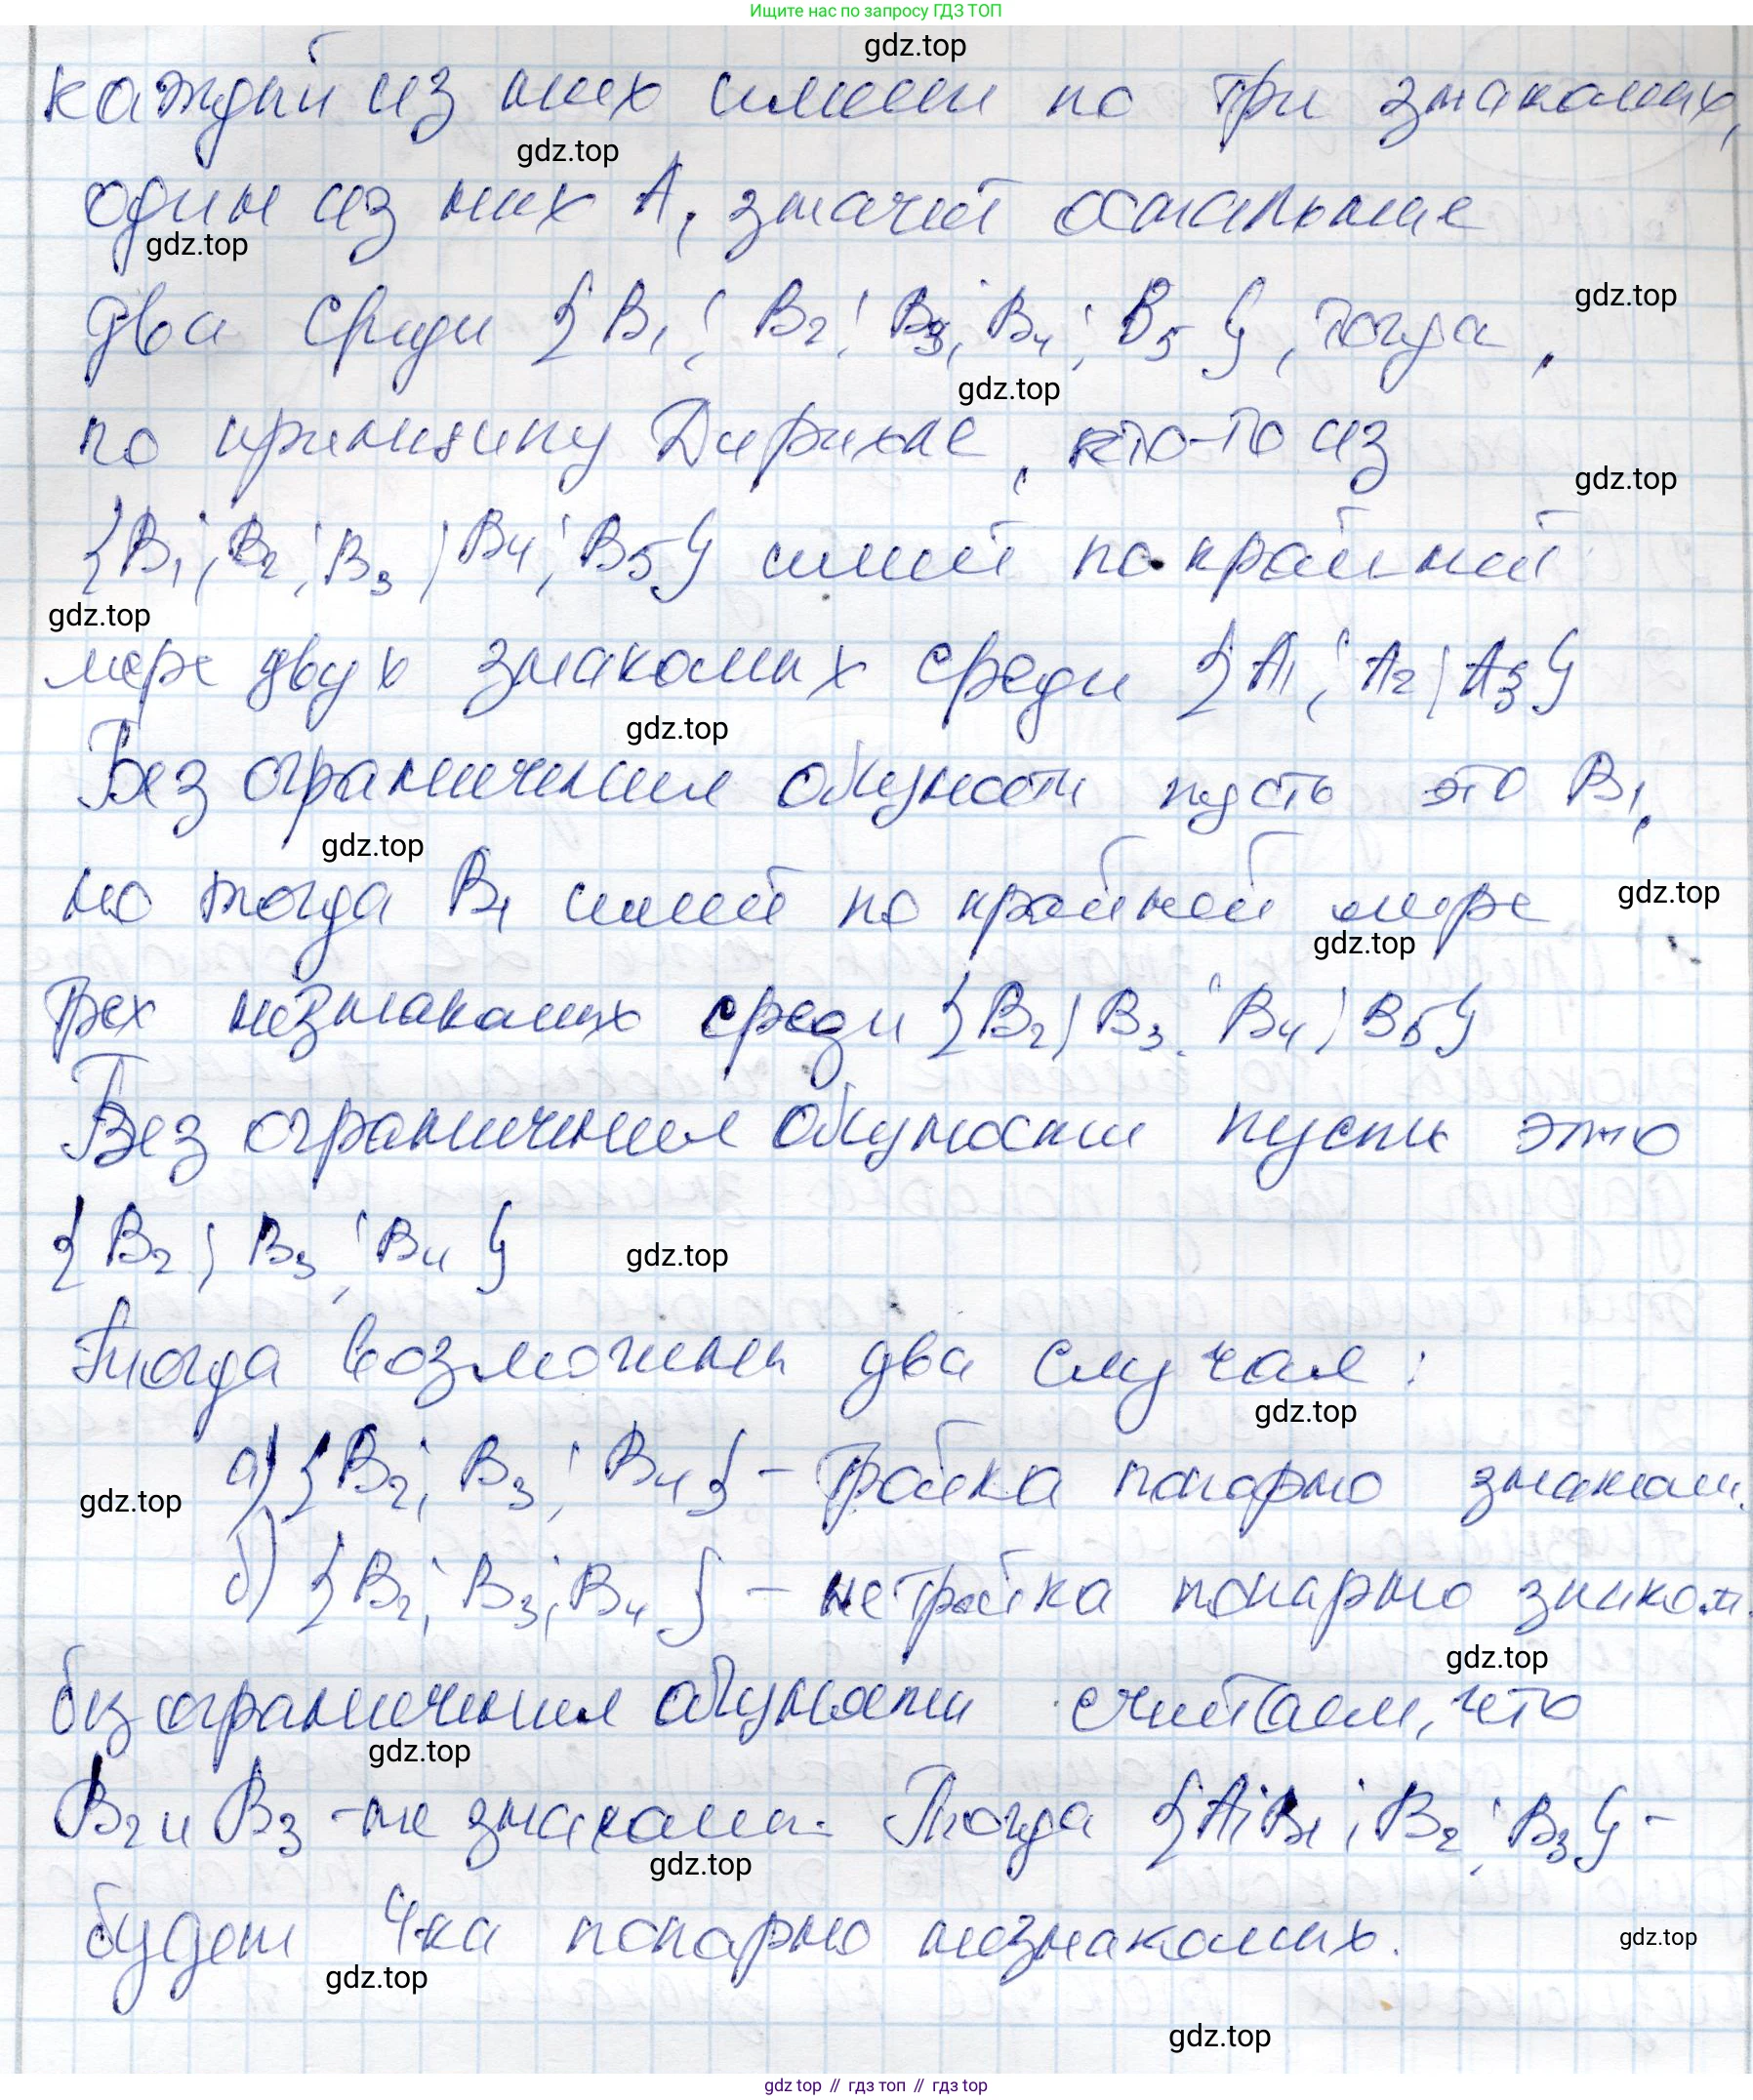 Ищите нас по запросу ГДЗ ТОП
gdz.top
каждый из них имеет по три знакомых,
gdz.top
один из них А, значит остальные
gdz.top
два среди {B₁; B₂; B₃; B₄; B₅}, тогда,
gdz.top
gdz.top
по принципу Дирихле, кто-то из
gdz.top
{B₁; B₂; B₃; B₄; B₅} имеет по крайней
gdz.top
мере двух знакомых среди {A₁; A₂; A₃}
gdz.top
Без ограничения общности пусть это B₁,
gdz.top
но тогда B₁ имеет по крайней мере
gdz.top
gdz.top
трех незнакомых среди {B₂; B₃; B₄; B₅}
Без ограничения общности пусть это
{B₂; B₃; B₄}
gdz.top
Тогда возможны два случая:
gdz.top
а) {B₂; B₃; B₄} - тройка попарно знаком.
gdz.top
б) {B₂; B₃; B₄} - не тройка попарно знаком.
gdz.top
без ограничения общности считаем, что
gdz.top
B₂ и B₃ - не знакомы. Тогда {A; B₁; B₂; B₃} -
gdz.top
будет 4-ка попарно незнакомых.
gdz.top
gdz.top
gdz.top
gdz.top // гдз топ // гдз top